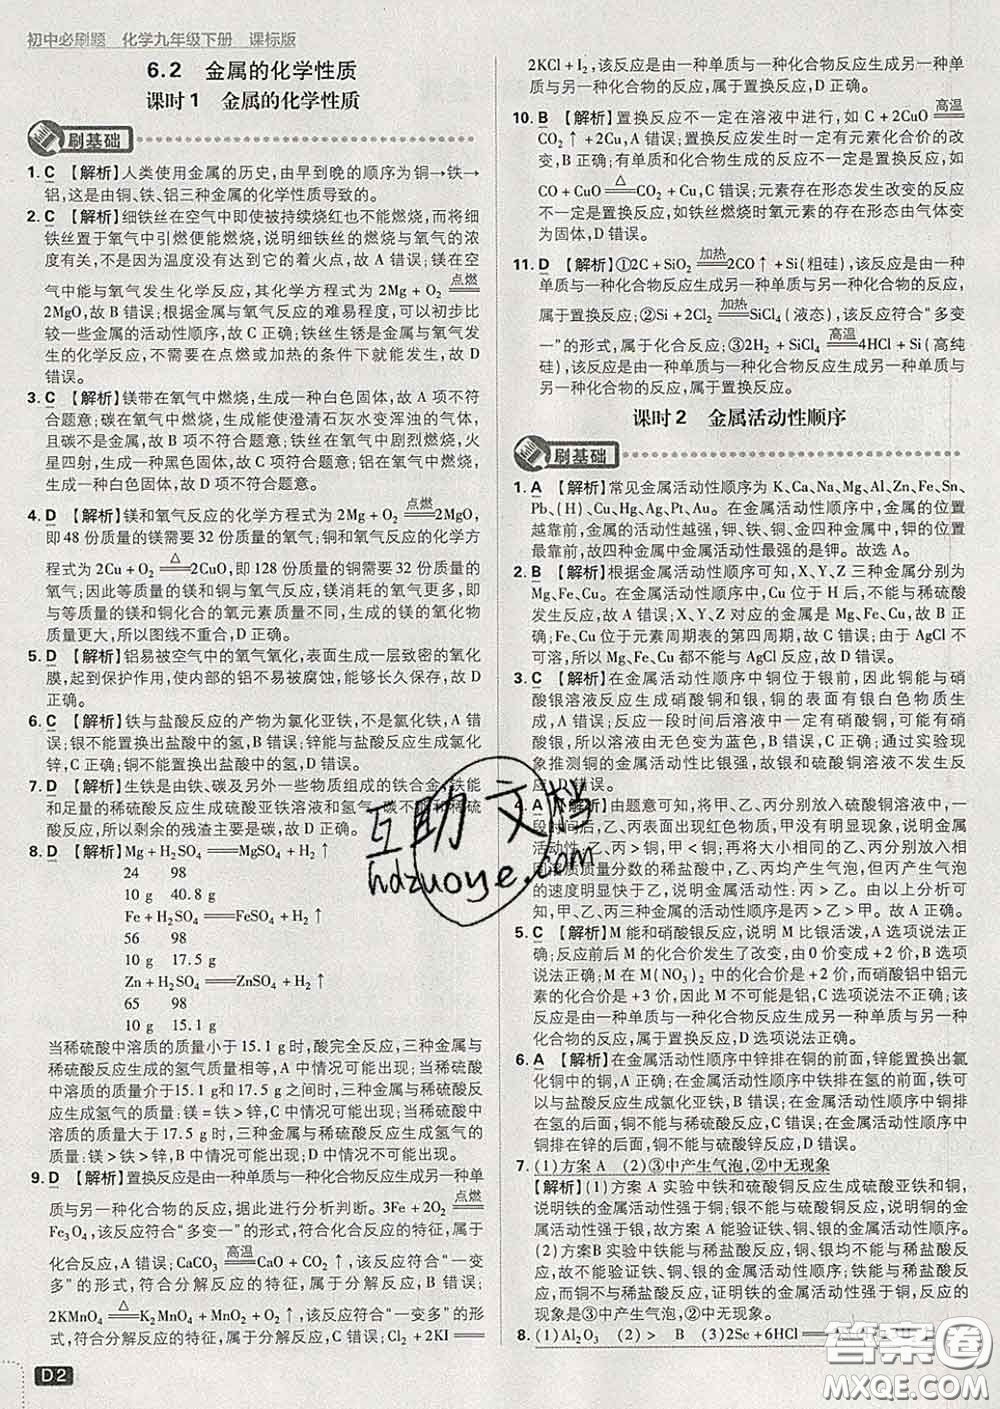 初中必刷题 化学九年级下册 课标版
6.2 金属的化学性质
课时1 金属的化学性质
刷基础
1. C 【解析】人类使用金属的历史，由早到晚的顺序为铜→铁→
铝，这是由铜、铁、铝三种金属的化学性质导致的。
2. C 【解析】细铁丝在空气中即使被持续烧红也不能燃烧，而将细
铁丝置于氧气中引燃便能燃烧，说明细铁丝的燃烧与氧气的浓
度有关，不是因为温度没有达到它的着火点，故 A 错误；镁在空
气中能与氧气发生化学反应，其化学方程式为 2Mg + O₂ 点燃══
2MgO，故 B 错误；根据金属与氧气反应的难易程度，可以初步
比较一些金属的活动性顺序，故 C 正确；铁丝生锈是金属与氧气
发生的化学反应，不需要在点燃或加热的条件下就能发生，故 D
错误。
3. C 【解析】镁带在氧气中燃烧，生成一种白色固体，故 A 项不符
合题意；碳在氧气中燃烧，生成能使澄清石灰水变浑浊的气体，
且碳不是金属，故 B 项不符合题意；铁在氧气中剧烈燃烧，
火星四射，生成一种黑色固体，故 C 项符合题意；铝在氧气中燃烧，
生成一种白色固体，故 D 项不符合题意。
4. D 【解析】镁和氧气反应的化学方程式为 2Mg + O₂ 点燃══2MgO，
即 48 份质量的镁需要 32 份质量的氧气；铜和氧气反应的化学方
程式为 2Cu + O₂ △══2CuO，即 128 份质量的铜需要 32 份质量的
氧气；因此等质量的镁和铜与氧气反应，镁消耗的氧气更多，即
与等质量的镁和铜化合的氧元素质量不同，生成的镁的氧化物
质量更大，所以图线不重合，D 正确。
5. D 【解析】铝易被空气中的氧气氧化，表面生成一层致密的氧化
膜，起到保护作用，使内部的铝不易被腐蚀，能够长久保存，故 D
正确。
6. C 【解析】铁与盐酸反应的产物为氯化亚铁，不是氯化铁，A 错
误；银不能置换出盐酸中的氢，B 错误；锌能与盐酸反应生成氯化
锌，C 正确；铜不能置换出盐酸中的氢，D 错误。
7. D 【解析】生铁是由铁、碳及另外一些物质组成的铁合金，铁能
和足量的稀硫酸反应生成硫酸亚铁溶液和氢气，碳不能和稀硫
酸反应，所以剩余的残渣主要是碳，故 D 正确。
8. D 【解析】Mg + H₂SO₄ ══ MgSO₄ + H₂↑
24 98
10 g 40.8 g
Fe + H₂SO₄ ══ FeSO₄ + H₂↑
56 98
10 g 17.5 g
Zn + H₂SO₄ ══ ZnSO₄ + H₂↑
65 98
10 g 15.1 g
当稀硫酸中溶质的质量小于 15.1 g 时，酸完全反应，三种金属与
稀硫酸反应生成的氢气质量相等，A 中情况可能出现；当稀硫酸
中溶质的质量介于15.1 g和 17.5 g 之间时，三种金属与稀硫酸反
应生成氢气的质量：镁＝铁＞锌，C 中情况可能出现；当稀硫酸中
溶质的质量大于 17.5 g 时，三种金属与稀硫酸反应生成氢气的
质量：镁＞铁＞锌，B 中情况可能出现；D 中情况不可能出现。
9. D 【解析】置换反应是由一种单质与一种化合物反应生成另一种单
质与另一种化合物的反应，据此进行分析判断。3Fe + 2O₂ 点燃══
Fe₃O₄，该反应符合“多变一”的形式，符合化合反应的特征，属于
化合反应，A 错误；CaCO₃ 高温══ CaO + CO₂↑，该反应符合“一变
多”的形式，符合分解反应的特征，属于分解反应，B 错误；
2KMnO₄ △══ K₂MnO₄ + MnO₂ + O₂↑，该反应符合“一变多”的形
式，符合分解反应的特征，属于分解反应，C 错误；Cl₂ + 2KI ══
2KCl + I₂，该反应是由一种单质与一种化合物反应生成另一种单
质与另一种化合物的反应，属于置换反应，D 正确。
10. B 【解析】置换反应不一定在溶液中进行，如 C + 2CuO 高温══
2Cu + CO₂↑，A 错误；置换反应发生时一定有元素化合价的改
变，B 正确；有单质和化合物生成的反应不一定是置换反应，如
CO + CuO △══ CO₂ + Cu，C 错误；元素存在形态发生改变的反应
不一定是置换反应，如镁条燃烧时氧元素的存在形态由气体变
为固体，D 错误。
11. D 【解析】①2C + SiO₂ 加热══2CO↑ + Si（粗硅），该反应是由一种
单质与一种化合物反应生成另一种单质与另一种化合物的反
应，属于置换反应；②Si + 2Cl₂ 加热══SiCl₄（液态），该反应符合“多变
一”的形式，属于化合反应；③2H₂ + SiCl₄ 高温══4HCl + Si（高纯
硅），该反应是由一种单质与一种化合物反应生成另一种单质与
另一种化合物的反应，属于置换反应。
课时2 金属活动性顺序
刷基础
1. A 【解析】常见金属活动性顺序为 K、Ca、Na、Mg、Al、Zn、Fe、Sn、
Pb、(H)、Cu、Hg、Ag、Pt、Au。在金属活动性顺序中，金属的位置
越靠前，金属的活动性越强，钾、铁、铜、金四种金属中，钾的位置
最靠前，故四种金属中金属活动性最强的是钾。故选 A。
2. B 【解析】根据金属活动性顺序可知，X、Y、Z 三种金属分别为
Mg、Fe、Cu。在金属活动性顺序中，Cu 位于 H 后，不能与稀硫酸
发生反应，故 A 错误；X、Y、Z 对应的金属是 Mg、Fe、Cu，故 B 正
确；Fe、Cu 位于元素周期表的第四周期，故 C 错误；由于 AgCl 不
可溶，所以 Mg、Fe、Cu 都不能与 AgCl 反应，故 D 错误。
3. C 【解析】金属活动性顺序中铜位于银前，因此铜能与硝
酸银溶液反应生成硝酸铜和银，铜的表面有银白色物质生
成，A 错误；反应一段时间后溶液中一定有生成的硝酸铜，可能
有硝酸银，B 错误；铜与硝酸银反应时生成硝酸铜，硝酸铜溶液显蓝
色，所以溶液由无色变为蓝色，故 C 正确；通过实验现
象推测铜的活动性比银强，故银和硫酸铜溶液不能发生反
应，D 错误。
4. A 【解析】由题意可知，将甲、乙、丙分别放入硫酸铜溶液中，一
段时间后，乙、丙表面出现红色物质，甲没有明显现象，说明金属
活动性：乙、丙＞铜，甲＜铜；再将大小相同的乙、丙放入相同的
溶质质量分数的稀盐酸中，乙、丙均产生气泡，但丙产生气泡
的速度明显快于乙，说明金属活动性：丙＞乙。由以上分析
可知，甲、乙、丙三种金属的活动性顺序是丙＞乙＞甲，故选 A。
5. C 【解析】M 能和硝酸银反应，说明 M 比银活泼，A 选项说法正
确；反应前后 M 的化合价发生了改变，由 0 价变成 +2 价，B 选项
说法正确；M 在 M(NO₃)₂ 中的化合价是 +2 价，而硝酸铝中铝元
素的化合价是 +3 价，因此 M 不可能是铝，C 选项说法不正确；该
反应是由一种单质与一种化合物反应生成另一种单质与另一种
化合物的反应，属于置换反应，D 选项说法正确。
6. A 【解析】在金属活动性顺序中锌排在铜的前面，锌能置换出氯
化铜中的铜，A 正确；在金属活动性顺序中铁排在氢的前面，铁可
以与盐酸反应生成氯化亚铁，B 错误；在金属活动性顺序中银排
在氢的后面，银不能与稀盐酸反应，C 错误；在金属活动性顺序中
铜排在锌的后面，铜不能与硫酸锌反应，D 错误。
7. (1)方案 A (2)③中产生气泡，②中无现象
【解析】(1)方案 A 实验中铁和硫酸铜反应生成硫酸亚铁和铜，
说明铁的金属活动性强于铜；铜与硝酸银反应生成银，说明铜的
金属活动性强于银，故方案 A 能验证铁、铜、银的金属活动性顺序。
(2)方案B 实验中铁能与稀盐酸反应，铜、银均不能与稀盐酸反
应，故不能验证铁、铜、银的金属活动性顺序；铁能与稀盐酸反应，
而铜不与稀盐酸反应，说明铁的金属活动性强于铜，反应的
现象是③中产生气泡，②中无现象。
8. (1)Al₂O₃ (2)＞ B (3)2Sc + 6HCl ══
D2
互助文档
hdzuoye.com
答案圈
MXQE.COM